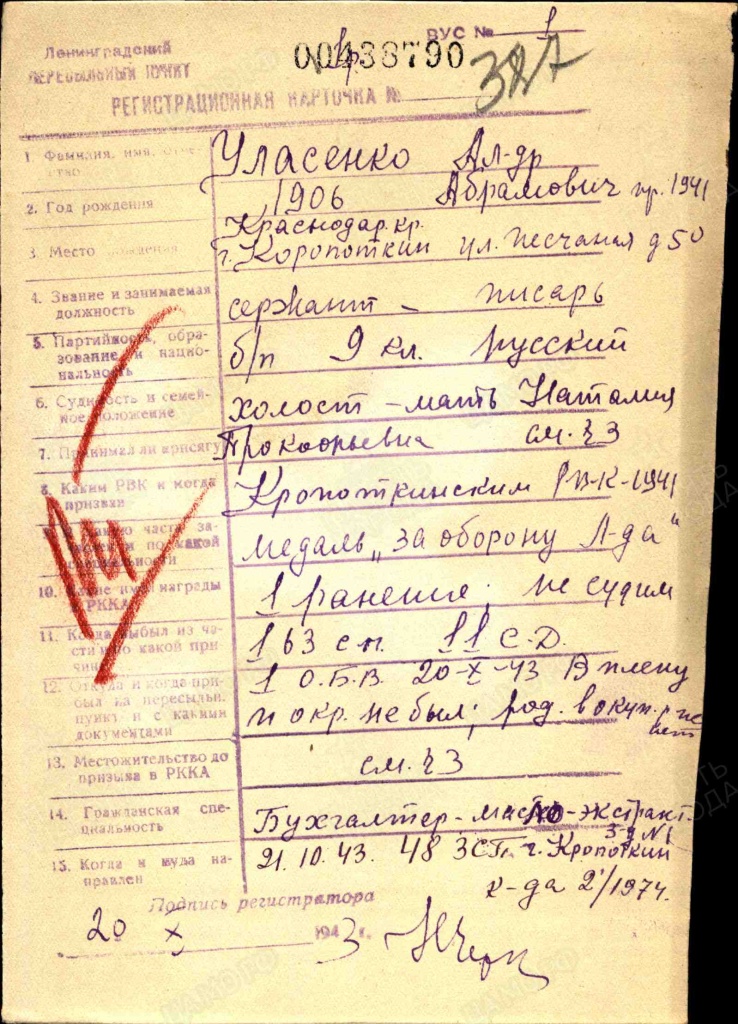 ВУС № 1
Ленинградский
ПЕРЕСЫЛЬНЫЙ ПУНКТ
00438790
387
РЕГИСТРАЦИОННАЯ КАРТОЧКА №
1. Фамилия, имя, отчество
Уласенко Ал-др
Абрамович пр. 1941
2. Год рождения
1906
3. Место рождения
Краснодар. кр.
г. Коропоткин ул. Песчаная д 50
4. Звание и занимаемая
должность
сержант – писарь
5. Партийность, обра-
зование и нацио-
нальность
б/п 9 кл. русский
6. Судимость и семей-
ное положение
холост – мать Наталия
7. Принимал ли присягу
Прокофьевна см. § 3
8. Каким РВК и когда
призван
Кропоткинским РВК-1941
медаль „За оборону Л-да"
10. Какие имел награды
в РККА
1 ранение; не судим
11. Когда выбыл из ча-
сти и по какой при-
чине
163 сп. 11 С.Д.
12. Откуда и когда при-
был на пересыльн.
пункт и с какими
документами
1 О.Б.В. 20-X-43 В плену
и окр. не был; род. в окуп.
13. Местожительство до
призыва в РККА
см. § 3
14. Гражданская спе-
циальность
Бухгалтер – масло-экстракт.
з-д №1
15. Когда и куда на-
правлен
21.10.43. 48 ЗСП. г. Кропоткин
к-да 2/1974.
Подпись регистратора
20 X 1943 г.